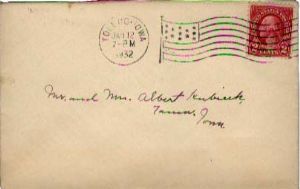 TOLEDO-IOWA
JAN 12
7-PM
1932
2
Mr. and Mrs. Albert Kubicek,
Tama,
Iowa.